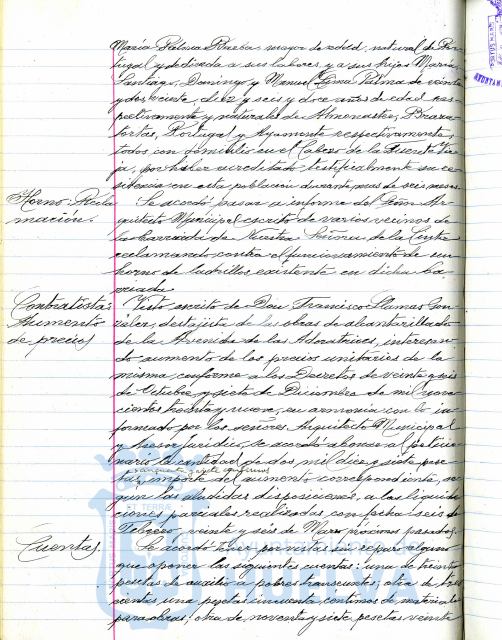 María Palma Rueba, mayor de edad, natural de Por-
tugal y dedicada a sus labores, y a sus hijos María,
Santiago, Domingo y Manuel Palma de veinte
y dos, veinte, diez y seis y doce años de edad, res-
pectivamente, y naturales de Almonaster,
Portugal y Ayamonte respectivamente,
todos con domicilio en el Cabezo de la Fuente Vie-
ja, por haber acreditado testificalmente su re-
sidencia en esta población durante mas de seis meses.
Horno.- Recla-
mación.-
Se acordó pasar a informe del Señor Ar-
quitecto Municipal escrito de varios vecinos de
la barriada de Nuestra Señora de la Cinta
reclamando contra el funcionamiento de un
horno de ladrillos existente en dicha ba-
rriada.
Contratista:
Aumento
de precios
Visto escrito de Don Francisco Llamas Gon-
zález, destajista de las obras de alcantarillado
de la Avenida de las Adoratrices, interesan-
do aumento de los precios unitarios de la
misma conforme a los Decretos de veinte y seis
de Octubre y siete de Diciembre de mil nove-
cientos treinta y nueve, en armonía con lo in-
formado por los señores Arquitecto Municipal
y Asesor Jurídico, se acordó abonar al peticio-
nario la cantidad de dos mil diez y siete pese-
tas, importe del aumento correspondiente, se-
gún las aludidas disposiciones, a las liquida-
ciones parciales realizadas con fecha seis de
Febrero y veinte y seis de Marzo próximo pasados.
Cuentas
Se acordó tener por vistas sin reparo alguno
que oponer las siguientes cuentas: una de treinta
pesetas de auxilio a pobres transeuntes; otra de tres-
cientas una pesetas cincuenta céntimos de materiales
para obras; otra de noventa y siete pesetas veinte
AYUNTAM
Ayuntamiento de
HUELVA